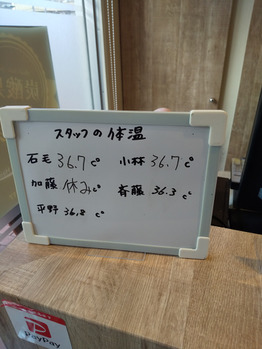 スタッフの体温
石毛 36.7 c° 小林 36.7 c°
加藤 休み c° 斉藤 36.3 c°
平野 36.8 c°
PayPay